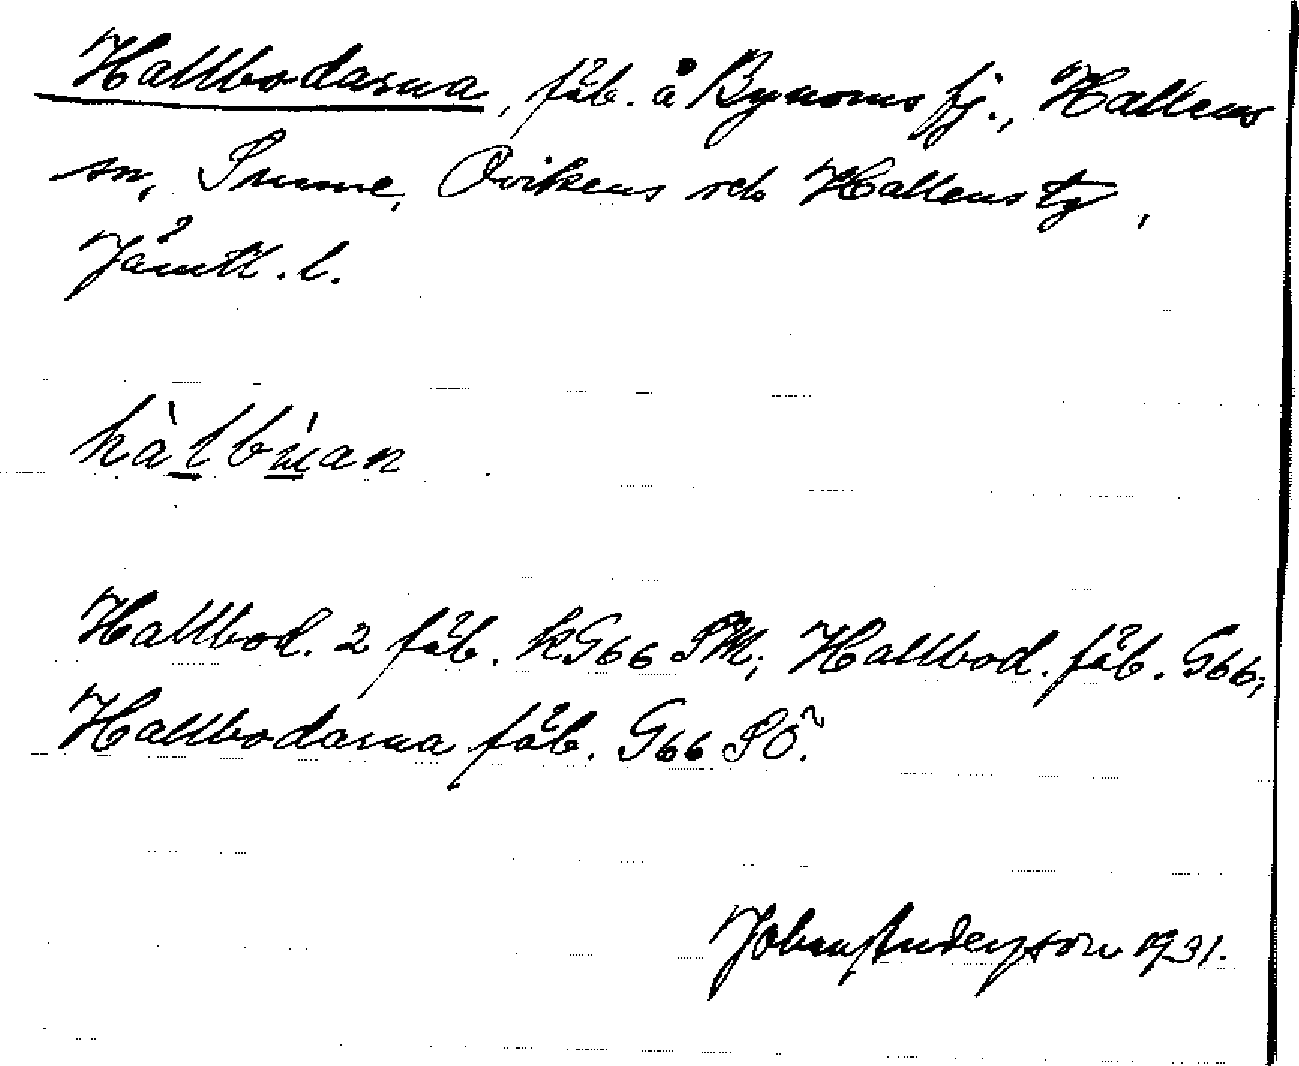 Hallbodarna, fäb. å Bynoms fj., Hallens
sn, Sunne, Ovikens och Hallens tg,
Jämtl. l.
hàlbùan
Hallbod. 2 fäb. kG66 SM; Hallbod. fäb. G66;
Hallbodarna fäb. G66 SO.
Johan Anderzson 1931.